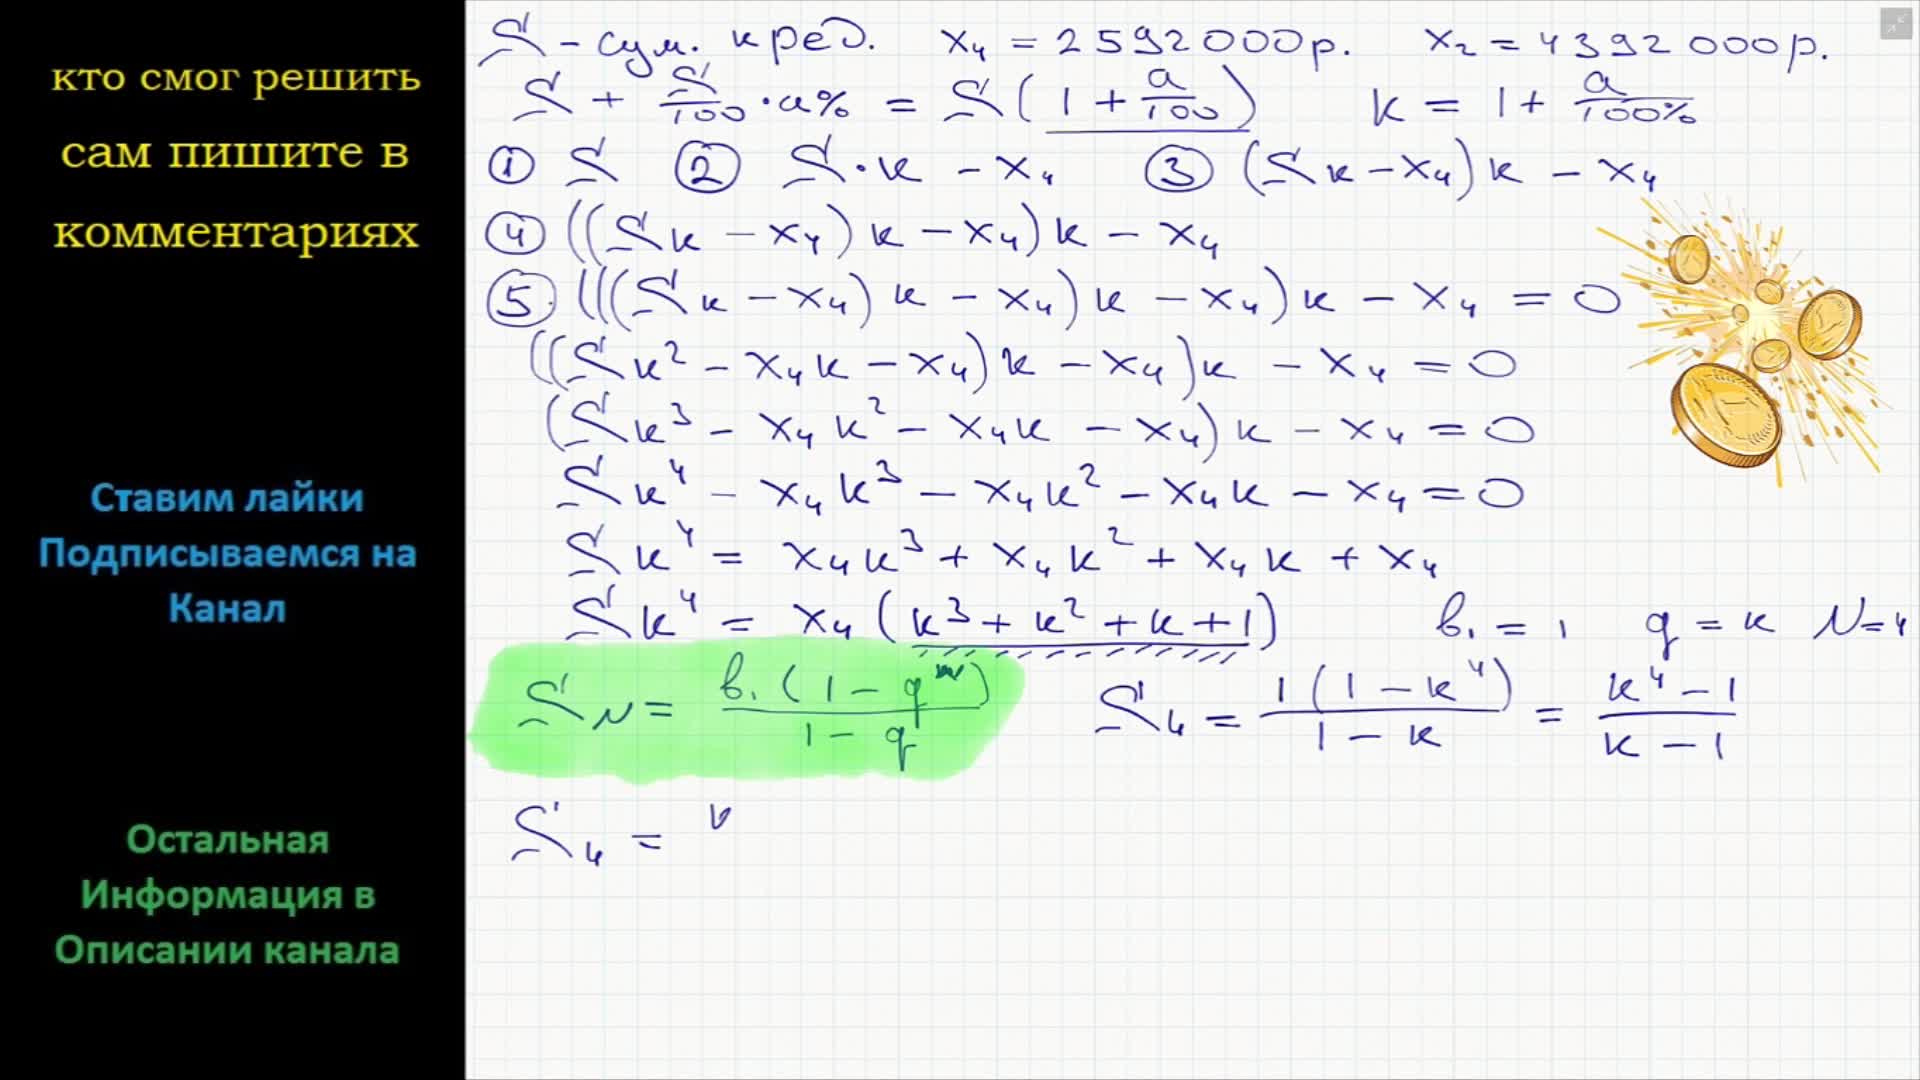 кто смог решить
сам пишите в
комментариях
Ставим лайки
Подписываемся на
Канал
Остальная
Информация в
Описании канала
S - сум. кред. x₄ = 2592000р. x₂ = 4392000р.
S + S/100 · a% = S(1 + a/100) k = 1 + a/100%
① S ② S·k - x₄ ③ (Sk - x₄)k - x₄
④ ((Sk - x₄)k - x₄)k - x₄
⑤ (((Sk - x₄)k - x₄)k - x₄)k - x₄ = 0
((Sk² - x₄k - x₄)k - x₄)k - x₄ = 0
(Sk³ - x₄k² - x₄k - x₄)k - x₄ = 0
Sk⁴ - x₄k³ - x₄k² - x₄k - x₄ = 0
Sk⁴ = x₄k³ + x₄k² + x₄k + x₄
Sk⁴ = x₄(k³ + k² + k + 1) b₁ = 1 q = k N = 4
S_N = b₁(1 - qᴺ)/(1 - q) S₄ = 1(1 - k⁴)/(1 - k) = (k⁴ - 1)/(k - 1)
S₄ =